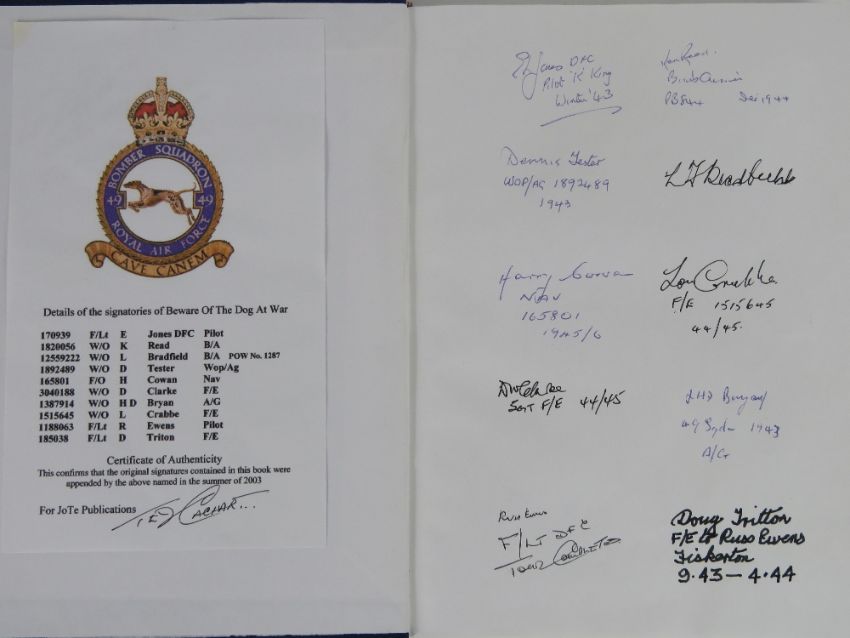 BOMBER SQUADRON
49 49
ROYAL AIR FORCE
CAVE CANEM
Details of the signatories of Beware Of The Dog At War
170939 F/Lt E Jones DFC Pilot
1820056 W/O K Read B/A
12559222 W/O L Bradfield B/A POW No. 1287
1892489 W/O D Tester Wop/Ag
165801 F/O H Cowan Nav
3040188 W/O D Clarke F/E
1387914 W/O H D Bryan A/G
1515645 W/O L Crabbe F/E
1188063 F/Lt R Ewens Pilot
185038 F/Lt D Triton F/E
Certificate of Authenticity
This confirms that the original signatures contained in this book were
appended by the above named in the summer of 2003
For JoTe Publications TED CACHART...
E Jones DFC
Pilot 'K' King
Winter '43
Ken Read.
Bomb Aimer
Dec 1944
Dennis Tester
WOP/AG 1892489
1943
Harry Cowan
NAV
165801
1945/6
Len Crabbe
F/E 1515645
44/45.
DW Clarke
SGT F/E 44/45
HD Bryan
49 Sqdn 1943
A/G
Russ Ewens
F/Lt DFC
Tour Completed
Doug Tritton
F/E to Russ Ewens
Fiskerton
9.43 - 4.44